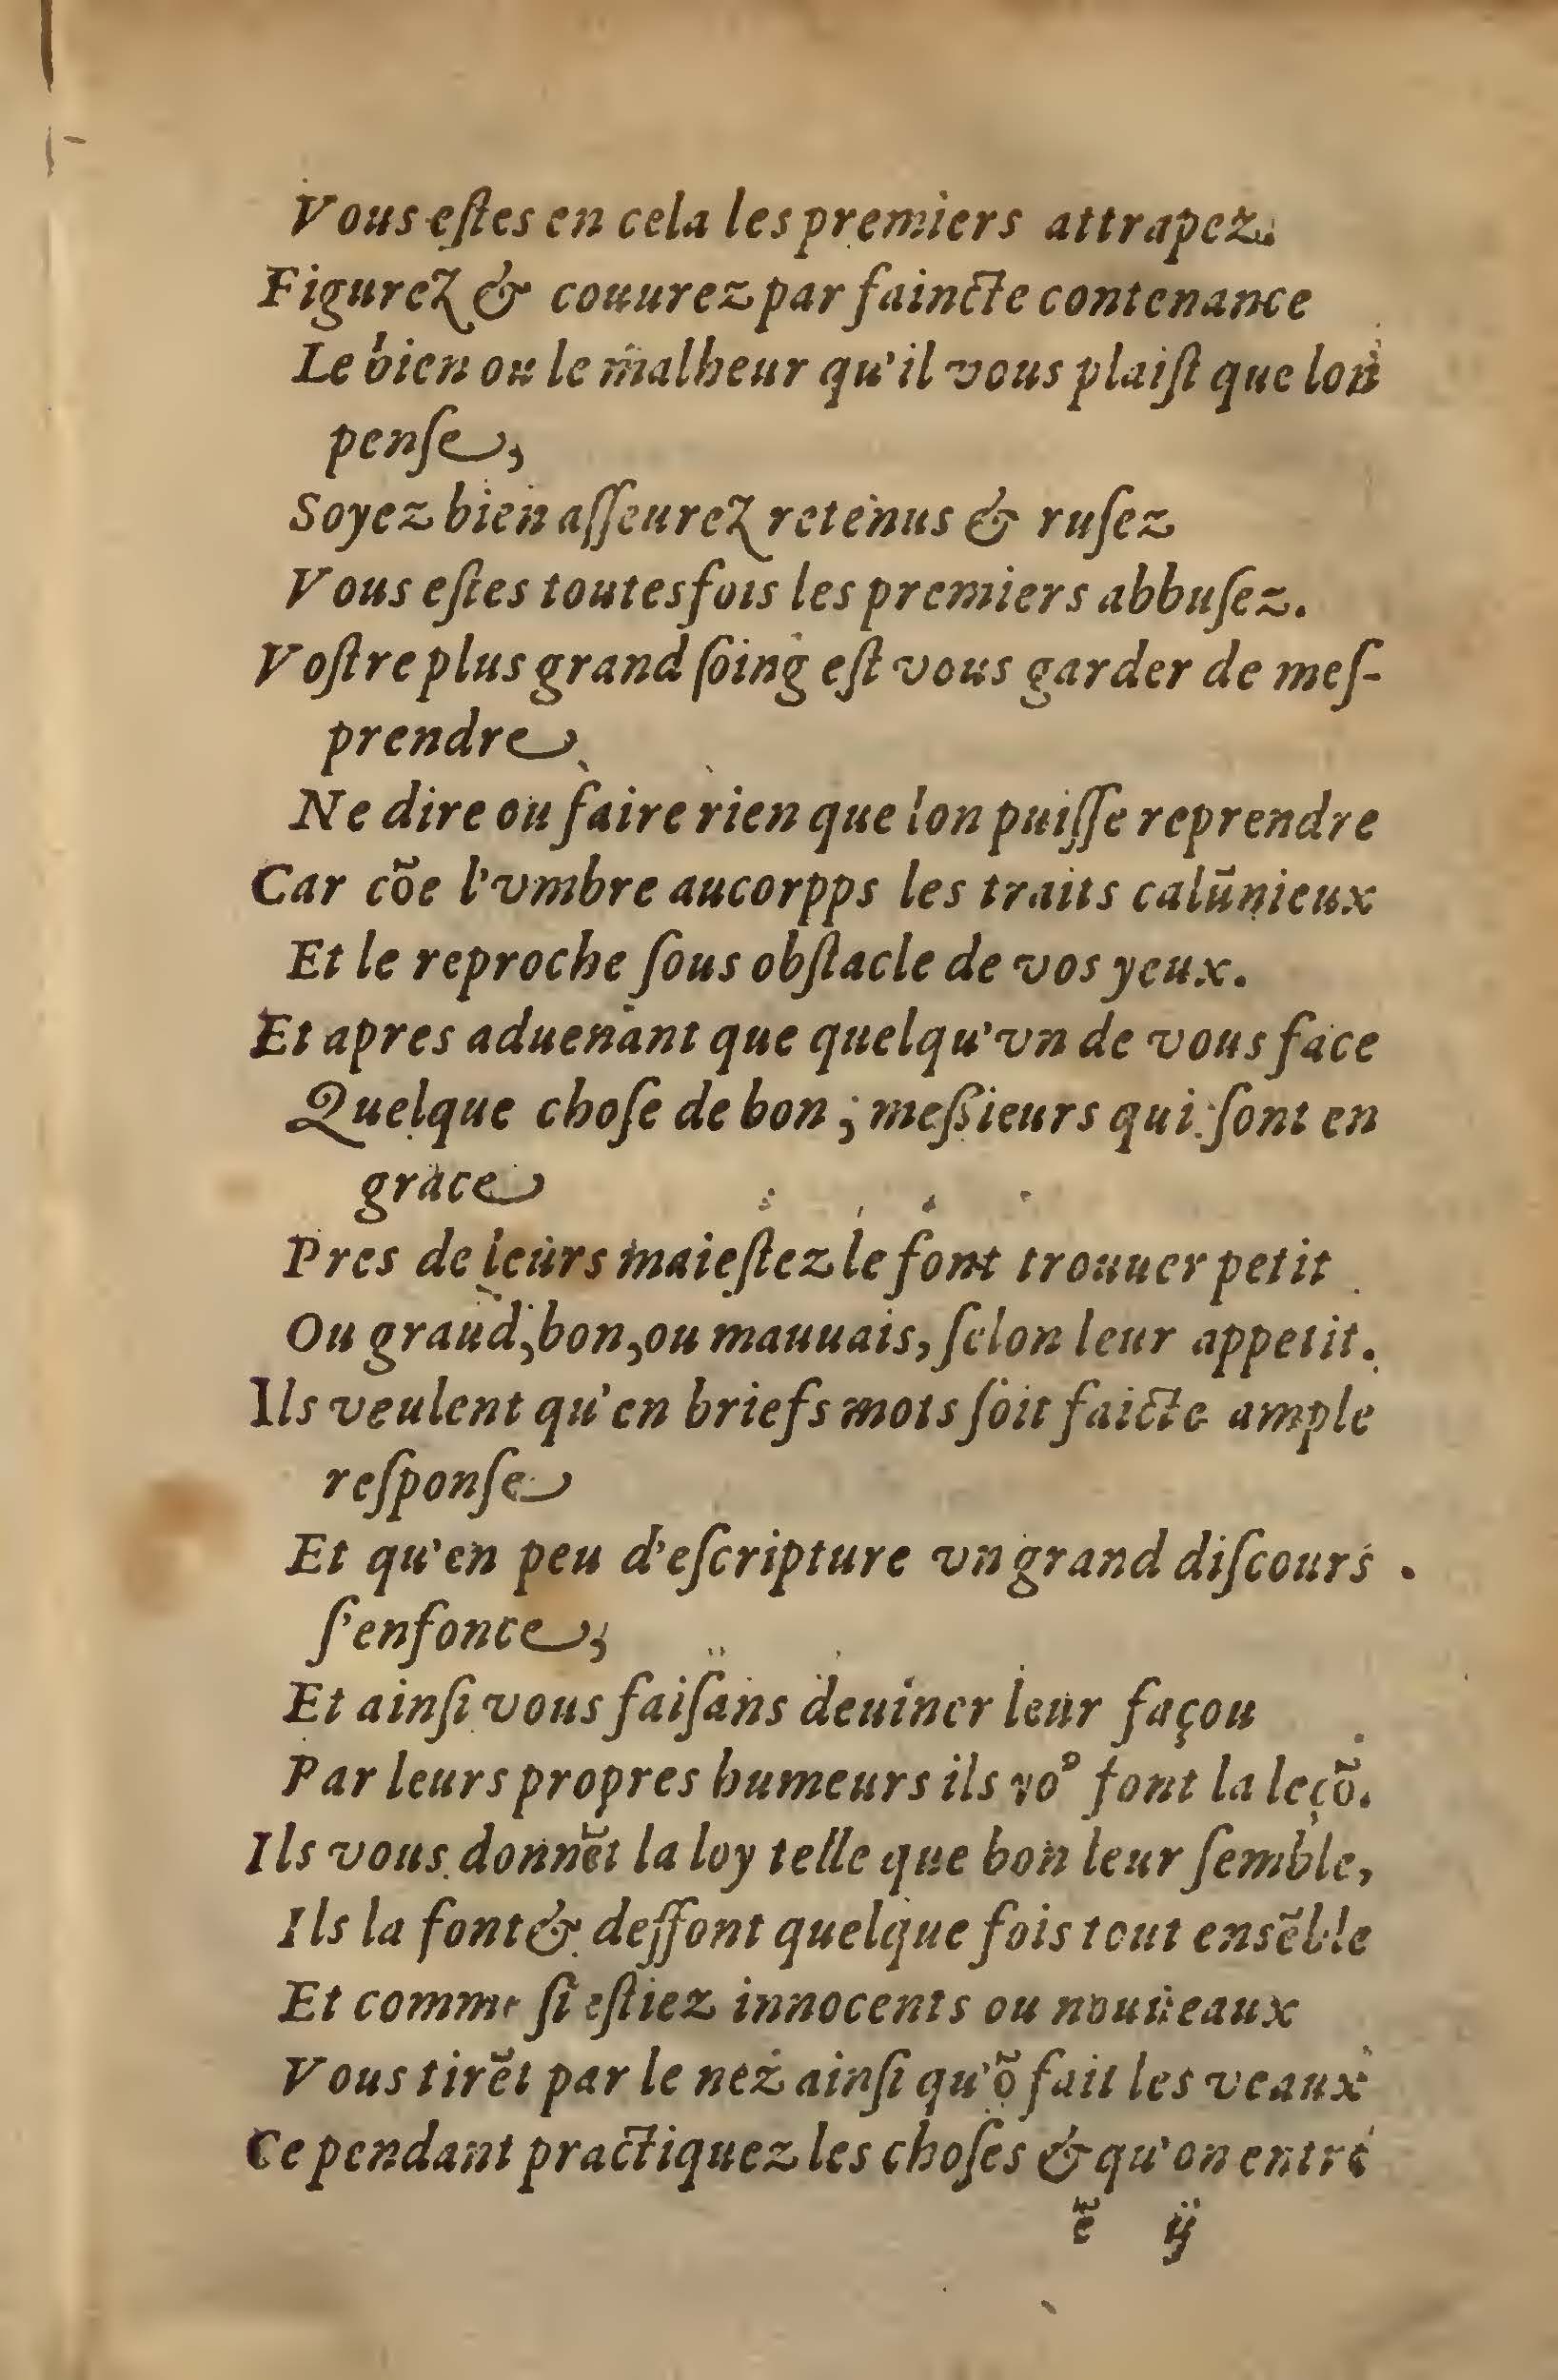 Vous eſtes en cela les premiers attrapez.
Figurez & couurez par fainćte contenance
Le bien ou le malheur qu'il vous plaiſt que lon
penſe,
Soyez bien aſſeurez retenus & ruſez
Vous eſtes toutesfois les premiers abbuſez.
Voſtre plus grand ſoing eſt vous garder de meſ-
prendre
Ne dire ou faire rien que lon puiſſe reprendre
Car cõe l'vmbre aucorpps les traits calũnieux
Et le reproche ſous obſtacle de vos yeux.
Et apres aduenant que quelqu'vn de vous face
Quelque choſe de bon; meſsieurs qui ſont en
grace
Pres de leurs maieſtez le font trouuer petit
Ou graud, bon, ou mauuais, ſelon leur appetit.
Ils veulent qu'en briefs mots ſoit faicte ample
reſponſe
Et qu'en peu d'eſcripture vn grand diſcours
ſ'enfonce,
Et ainſi vous faiſans deuiner leur façou
Par leurs propres humeurs ils voꝰ font la leçõ.
Ils vous donnẽt la loy telle que bon leur ſemble,
Ils la font & deffont quelque fois tout ensẽble
Et comme ſi eſtiez innocents ou nouueaux
Vous tirẽt par le nez ainſi qu'õ fait les veaux
Ce pendant practiquez les choſes & qu'on entre
ẽ ij